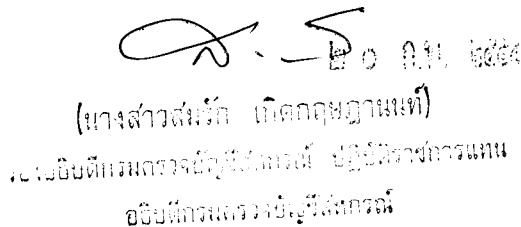 ๒๐ ก.พ.
(นางสาวสมรัก เกิดกฤษฎานนท์)
รองอธิบดีกรมตรวจบัญชีสหกรณ์ ปฏิบัติราชการแทน
อธิบดีกรมตรวจบัญชีสหกรณ์